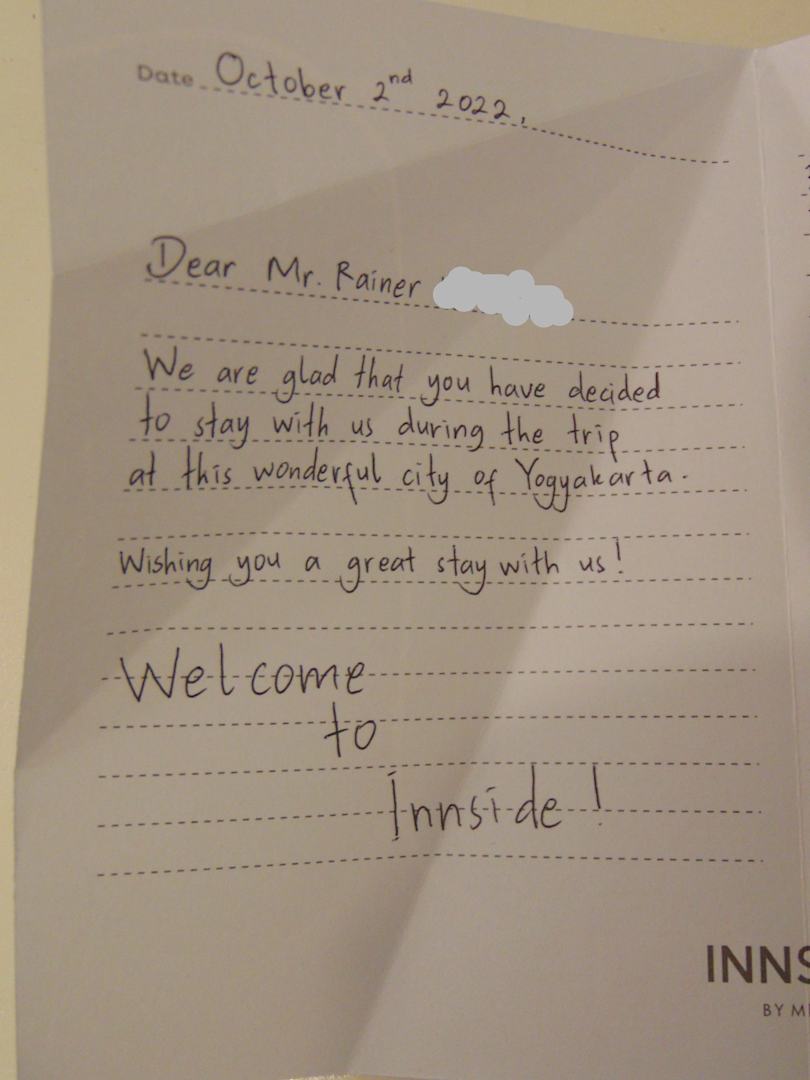 Date October 2nd 2022,
Dear Mr. Rainer
We are glad that you have decided
to stay with us during the trip
at this wonderful city of Yogyakarta.
Wishing you a great stay with us!
Welcome
to
Innside!
INNS
BY M